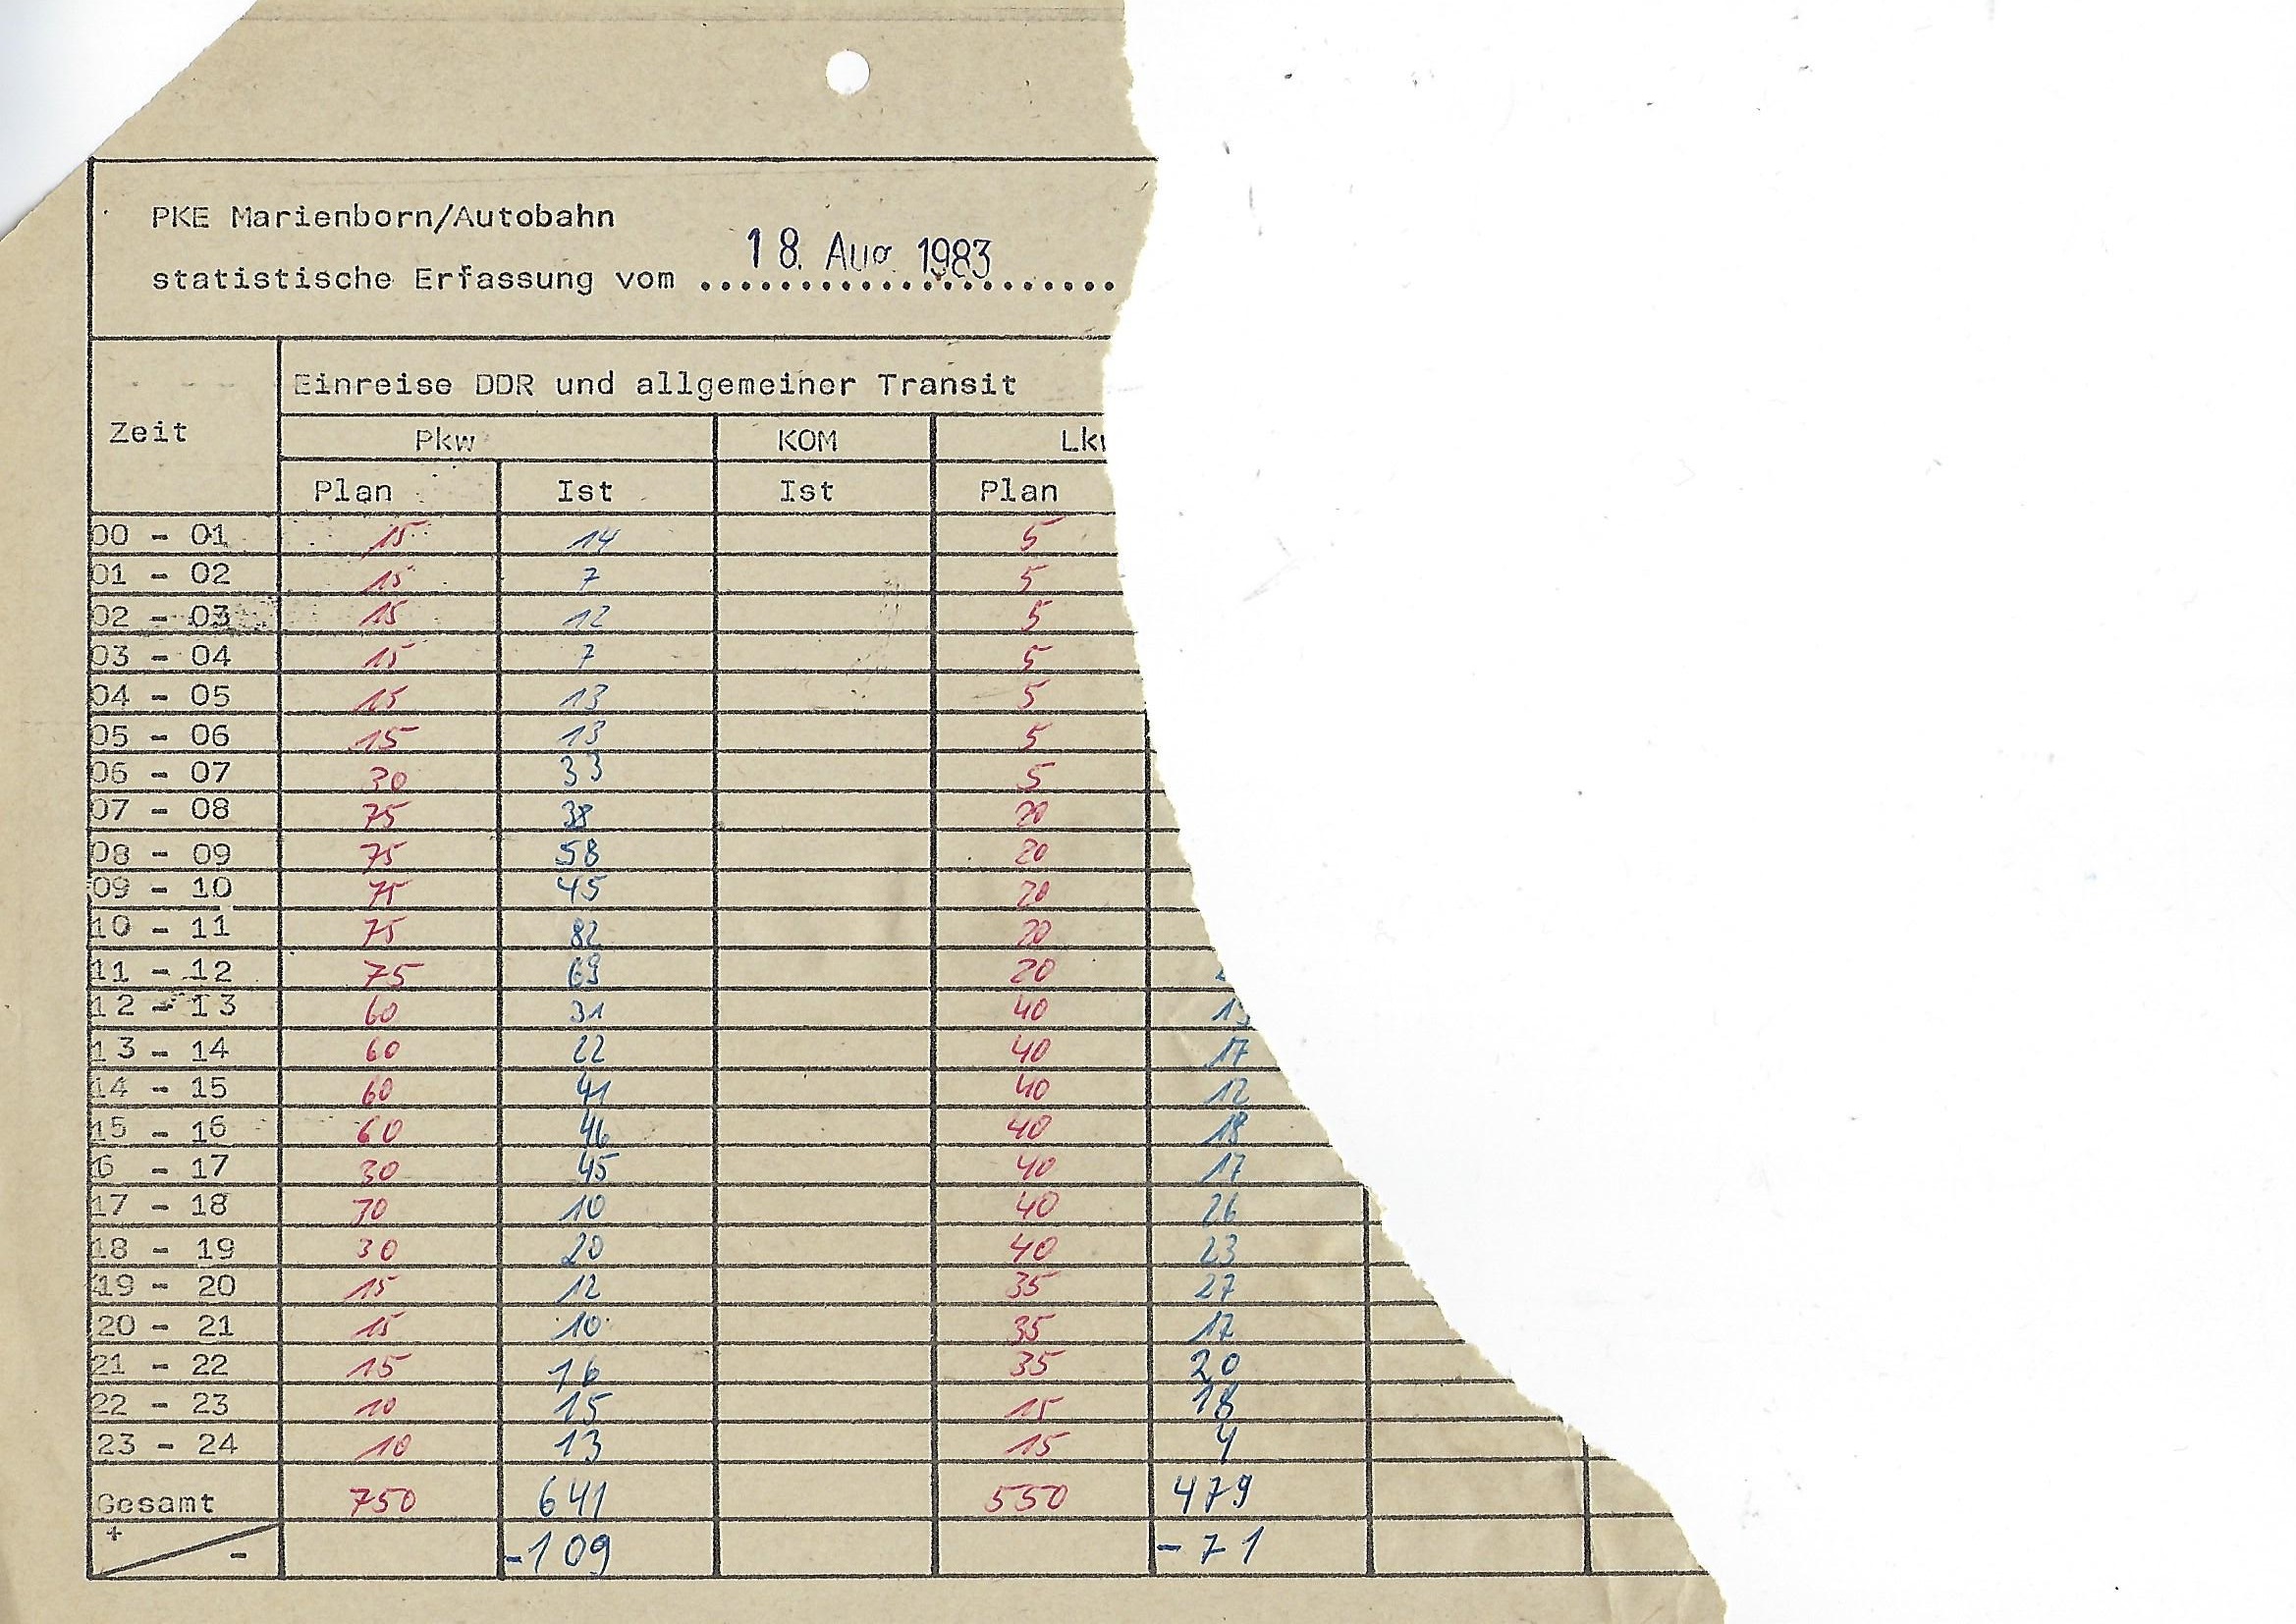 PKE Marienborn/Autobahn
18. Aug. 1983
statistische Erfassung vom ......................
Zeit Einreise DDR und allgemeiner Transit
Pkw KOM
Plan Ist Ist Plan
00 - 01 15 14 5
01 - 02 15 7 5
02 - 03 15 12 5
03 - 04 15 7 5
04 - 05 15 13 5
05 - 06 15 13 5
06 - 07 30 33 5
07 - 08 75 38 20
08 - 09 75 58 20
09 - 10 75 45 20
10 - 11 75 82 20
11 - 12 75 69 20
12 - 13 60 31 40
13 - 14 60 22 40 17
14 - 15 60 41 40 12
15 - 16 60 46 40 18
6 - 17 30 45 40 17
17 - 18 30 10 40 26
18 - 19 30 20 40 23
19 - 20 15 12 35 27
20 - 21 15 10 35 17
21 - 22 15 16 35 20
22 - 23 10 15 15 18
23 - 24 10 13 15 4
Gesamt 750 641 550 479
+ - -109 -71